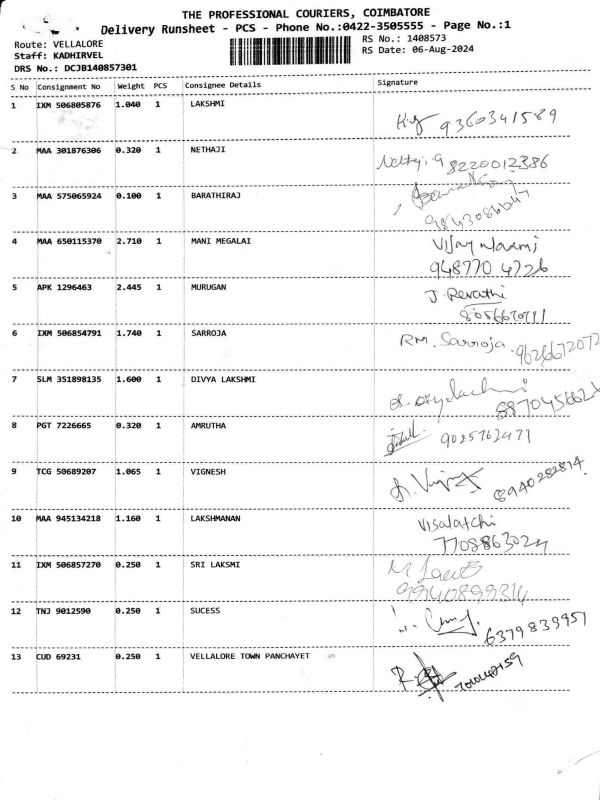 THE PROFESSIONAL COURIERS, COIMBATORE
Delivery Runsheet - PCS - Phone No.:0422-3505555 - Page No.:1
Route: VELLALORE
RS No.: 1408573
Staff: KADHIRVEL
RS Date: 06-Aug-2024
DRS No.: DCJB140857301
S No Consignment No Weight PCS Consignee Details Signature
1 IXM 506805876 1.040 1 LAKSHMI
9360341589
2 MAA 301876306 0.320 1 NETHAJI
8220012386
3 MAA 575065924 0.100 1 BARATHIRAJ
4 MAA 650115370 2.710 1 MANI MEGALAI
Vijayalaxmi
948770 4726
5 APK 1296463 2.445 1 MURUGAN
J. Revathi
6 IXM 506854791 1.740 1 SARROJA
RM. Sarroja.
7 SLM 351898135 1.600 1 DIVYA LAKSHMI
8 PGT 7226665 0.320 1 AMRUTHA
9025762471
9 TCG 50689207 1.065 1 VIGNESH
8940282814
10 MAA 945134218 1.160 1 LAKSHMANAN
Visalatchi
11 IXM 506857270 0.250 1 SRI LAKSMI
12 TNJ 9012590 0.250 1 SUCESS
6379839951
13 CUD 69231 0.250 1 VELLALORE TOWN PANCHAYET